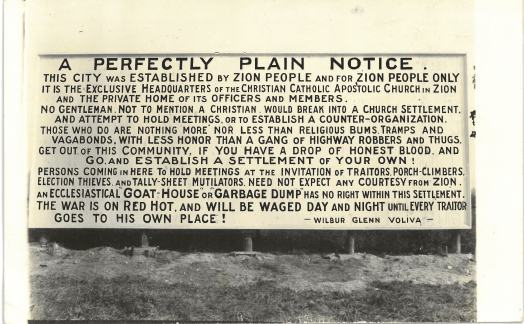 A PERFECTLY PLAIN NOTICE.
THIS CITY WAS ESTABLISHED BY ZION PEOPLE AND FOR ZION PEOPLE ONLY
IT IS THE EXCLUSIVE HEADQUARTERS OF THE CHRISTIAN CATHOLIC APOSTOLIC CHURCH IN ZION
AND THE PRIVATE HOME OF ITS OFFICERS AND MEMBERS.
NO GENTLEMAN, NOT TO MENTION A CHRISTIAN, WOULD BREAK INTO A CHURCH SETTLEMENT,
AND ATTEMPT TO HOLD MEETINGS, OR TO ESTABLISH A COUNTER-ORGANIZATION.
THOSE WHO DO ARE NOTHING MORE NOR LESS THAN RELIGIOUS BUMS, TRAMPS AND
VAGABONDS, WITH LESS HONOR THAN A GANG OF HIGHWAY ROBBERS AND THUGS.
GET OUT OF THIS COMMUNITY, IF YOU HAVE A DROP OF HONEST BLOOD, AND
GO, AND ESTABLISH A SETTLEMENT OF YOUR OWN!
PERSONS COMING IN HERE TO HOLD MEETINGS AT THE INVITATION OF TRAITORS, PORCH-CLIMBERS,
ELECTION THIEVES, AND TALLY-SHEET MUTILATORS, NEED NOT EXPECT ANY COURTESY FROM ZION.
AN ECCLESIASTICAL GOAT-HOUSE OR GARBAGE DUMP HAS NO RIGHT WITHIN THIS SETTLEMENT.
THE WAR IS ON RED HOT, AND WILL BE WAGED DAY AND NIGHT UNTIL EVERY TRAITOR
GOES TO HIS OWN PLACE! – WILBUR GLENN VOLIVA –